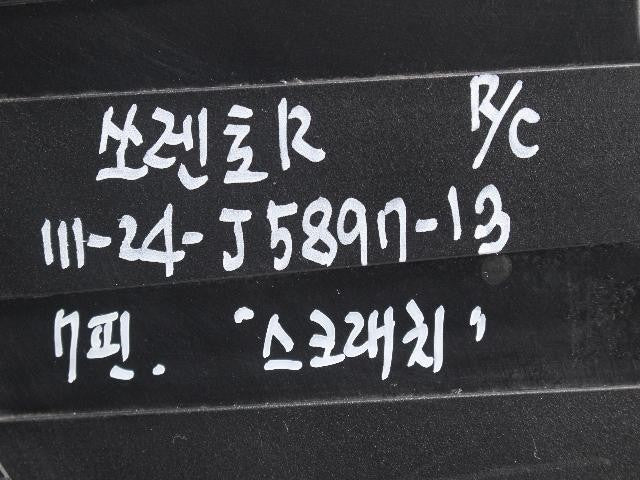 쏘렌토R R/C
111-24-J5897-13
7핀. "스크래치"